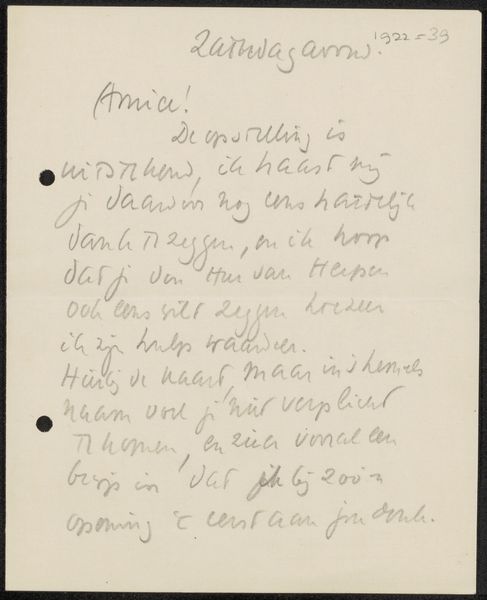 Zaterdagavond. 1922=39
Amice!
De opstelling is
uitstekend, ik haast mij
je daarvoor nog eens hartelijk
dank te zeggen, en ik hoop
dat je den Heer van Herpen
ook eens wilt zeggen hoezeer
ik zijn hulp waardeer.
Hierbij de kaart, maar in 's hemels
naam voel je niet verplicht
te komen, en zie er vooral een
bewijs in dat ik bij zoo'n
opening 't eerst aan jou denk.